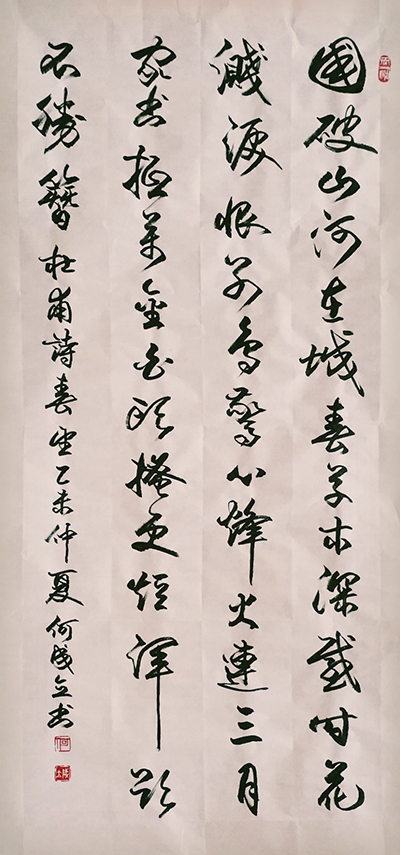 國破山河在城春草木深感時花
濺淚恨别鳥驚心烽火連三月
家書抵萬金白頭搔更短渾欲
不勝簪杜甫詩春望乙未仲夏何成立書